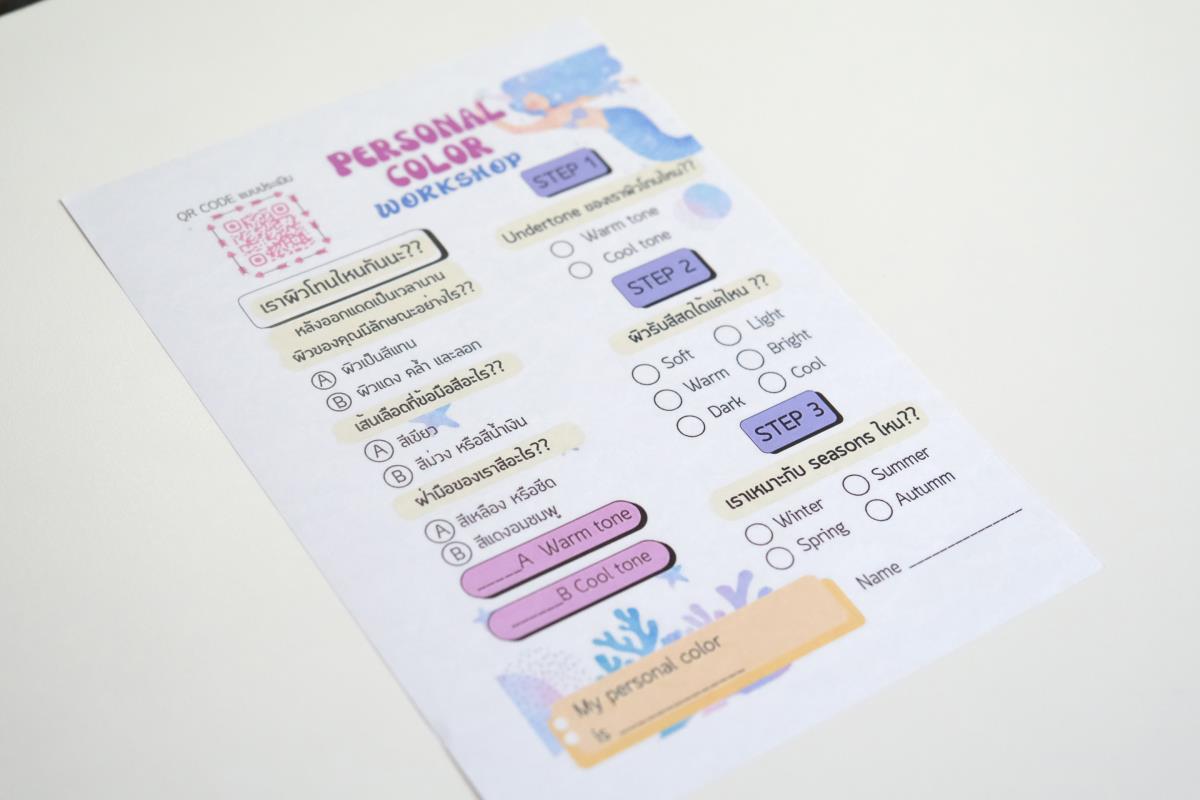 PERSONAL
COLOR
WORKSHOP
QR CODE แบบประเมิน
เราผิวโทนไหนกันนะ??
หลังออกแดดเป็นเวลานาน
ผิวของคุณมีลักษณะอย่างไร??
A ผิวเป็นสีแทน
B ผิวแดง คล้ำ และลอก
เส้นเลือดที่ข้อมือสีอะไร??
A สีเขียว
B สีม่วง หรือสีน้ำเงิน
ฝ่ามือของเราสีอะไร??
A สีเหลือง หรือซีด
B สีแดงอมชมพู
_____A Warm tone
_____B Cool tone
STEP 1
Undertone ของเราผิวโทนไหน??
Warm tone
Cool tone
STEP 2
ผิวรับสีสดได้แค่ไหน ??
Soft Light
Warm Bright
Dark Cool
STEP 3
เราเหมาะกับ seasons ไหน??
Winter Summer
Spring Autumm
Name ______________
My personal color
is ______________